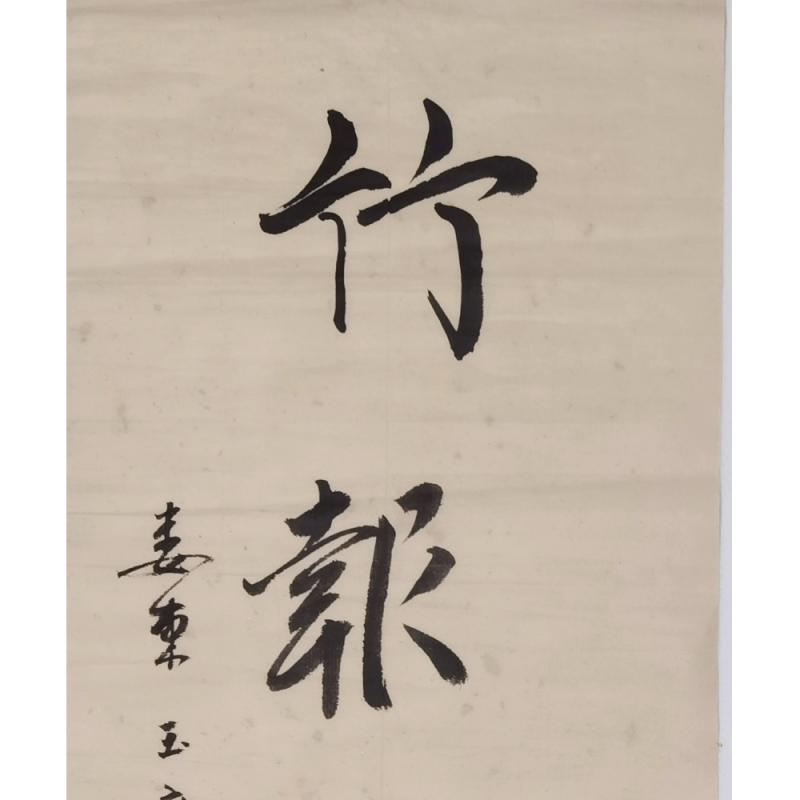 竹報
婁東 玉